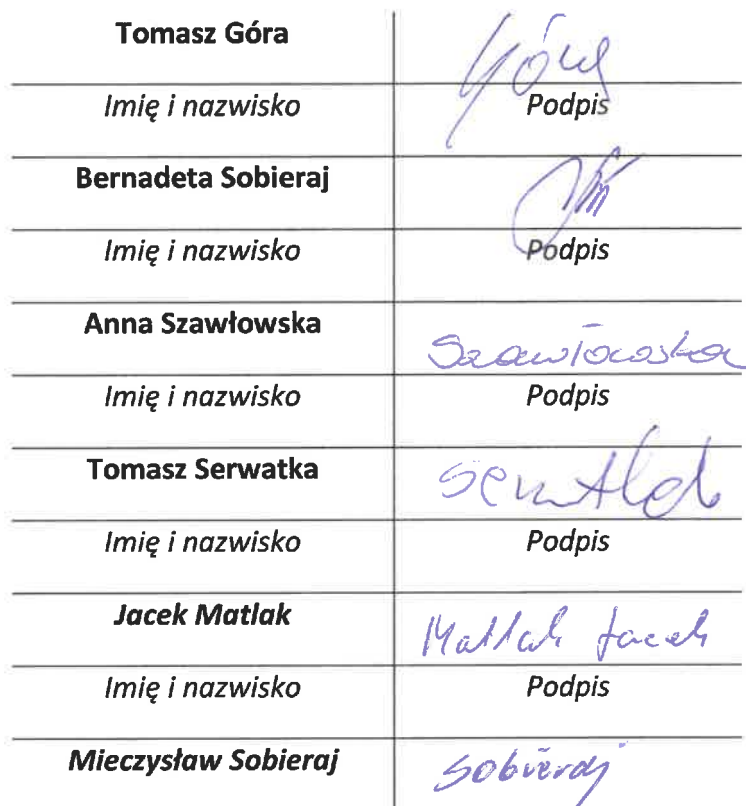 Tomasz Góra Góra
Imię i nazwisko Podpis
Bernadeta Sobieraj
Imię i nazwisko Podpis
Anna Szawłowska Szawłowska
Imię i nazwisko Podpis
Tomasz Serwatka
Imię i nazwisko Podpis
Jacek Matlak Matlak Jacek
Imię i nazwisko Podpis
Mieczysław Sobieraj Sobieraj